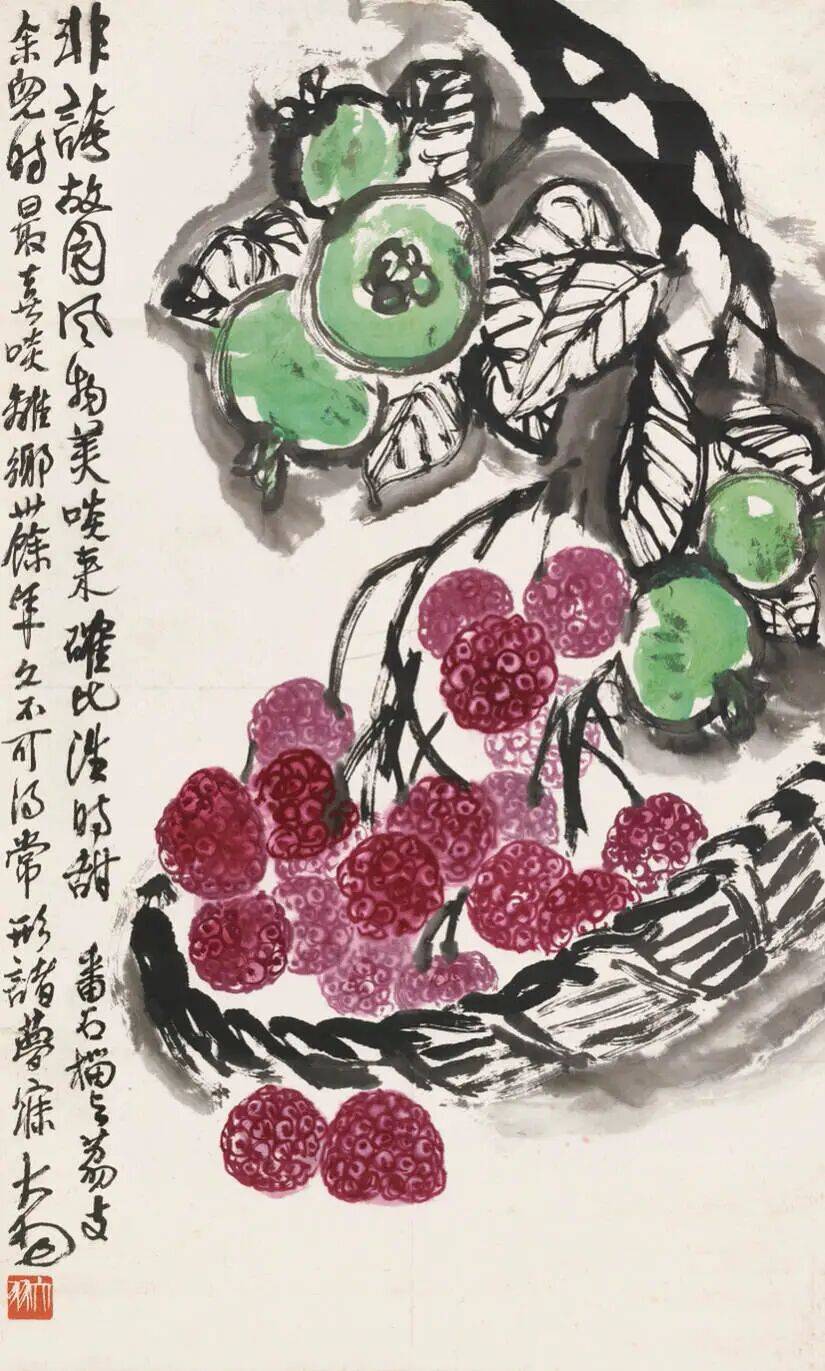 非誇故园风物美啖来確比時甜 番石榴与荔支
余兒時最喜啖離鄉卅餘年久不可得常形諸夢寐 大羽
大羽